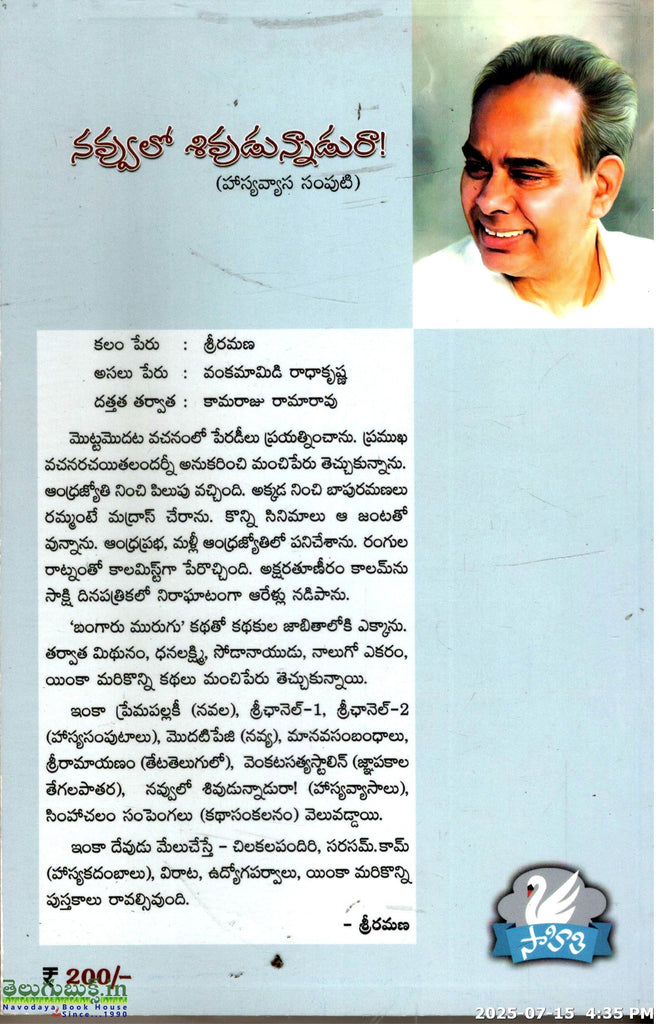 నవ్వులో శివుడున్నాడురా!
(హాస్యవ్యాస సంపుటి)
కలం పేరు : శ్రీరమణ
అసలు పేరు : వంకమామిడి రాధాకృష్ణ
దత్తత తర్వాత : కామరాజు రామారావు
మొట్టమొదట వచనంలో పేరడీలు ప్రయత్నించాను. ప్రముఖ
వచనరచయితలందర్నీ అనుకరించి మంచిపేరు తెచ్చుకున్నాను.
ఆంధ్రజ్యోతి నించి పిలుపు వచ్చింది. అక్కడ నించి బాపురమణలు
రమ్మంటే మద్రాస్ చేరాను. కొన్ని సినిమాలు ఆ జంటతో
వున్నాను. ఆంధ్రప్రభ, మళ్లీ ఆంధ్రజ్యోతిలో పనిచేశాను. రంగుల
రాట్నంతో కాలమిస్ట్‌గా పేరొచ్చింది. అక్షరతూణీరం కాలమ్‌ను
సాక్షి దినపత్రికలో నిరాఘాటంగా ఆరేళ్లు నడిపాను.
'బంగారు మురుగు' కథతో కథకుల జాబితాలోకి ఎక్కాను.
తర్వాత మిథునం, ధనలక్ష్మి, సోడానాయుడు, నాలుగో ఎకరం,
యింకా మరికొన్ని కథలు మంచిపేరు తెచ్చుకున్నాయి.
ఇంకా ప్రేమపల్లకీ (నవల), శ్రీఛానెల్-1, శ్రీఛానెల్-2
(హాస్యసంపుటాలు), మొదటిపేజి (నవ్య), మానవసంబంధాలు,
శ్రీరామాయణం (తేటతెలుగులో), వెంకటసత్యస్టాలిన్ (జ్ఞాపకాల
తేగలపాతర), నవ్వులో శివుడున్నాడురా! (హాస్యవ్యాసాలు),
సింహాచలం సంపెంగలు (కథాసంకలనం) వెలువడ్డాయి.
ఇంకా దేవుడు మేలుచేస్తే - చిలకలపందిరి, సరసమ్.కామ్
(హాస్యకదంబాలు), విరాట, ఉద్యోగపర్వాలు, యింకా మరికొన్ని
పుస్తకాలు రావల్సివుంది.
- శ్రీరమణ
సాహితి
₹ 200/-
తెలుగుబుక్స్.in
Navodaya Book House
Since...1990
2025-07-15 4:35 PM